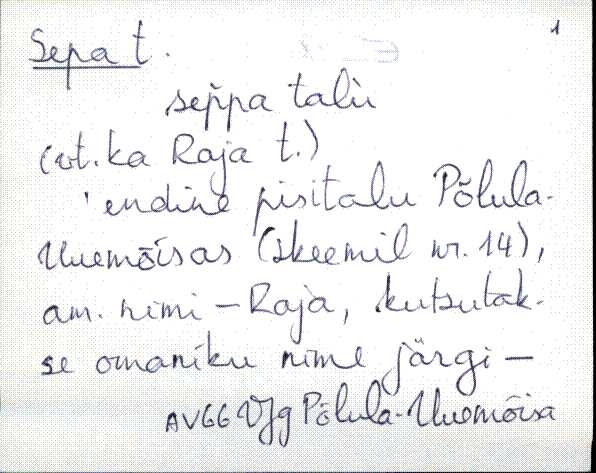 1
Sepa t.
seppa talu
(vt. ka Raja t.)
'endine pisitalu Põlula-
Uuemõisas (skeemil nr. 14),
am. nimi – Raja, kutsutak-
se omaniku nime järgi –
Vjg Põlula-Uuemõisa